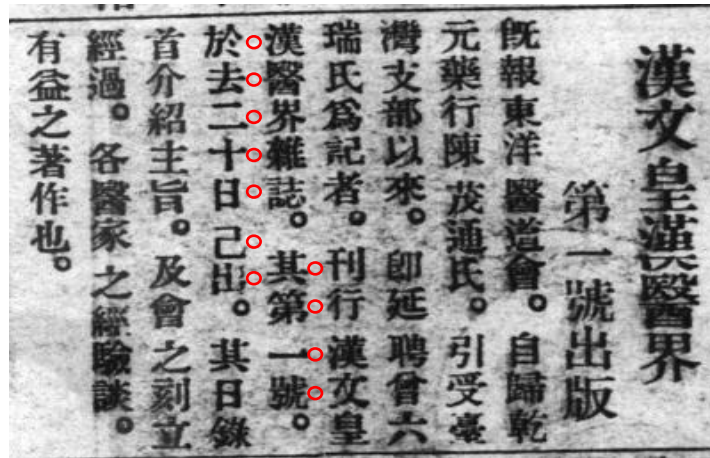 漢文皇漢醫界
第一號出版
旣報東洋醫道會。自歸乾
元藥行陳茂通氏。引受臺
灣支部以來。卽延聘曾六
瑞氏爲記者。刊行漢文皇
漢醫界雜誌。其第一號。
於去二十日己出。其日錄
首介紹主旨。及會之刻立
經過。各醫家之經驗談。
有益之著作也。